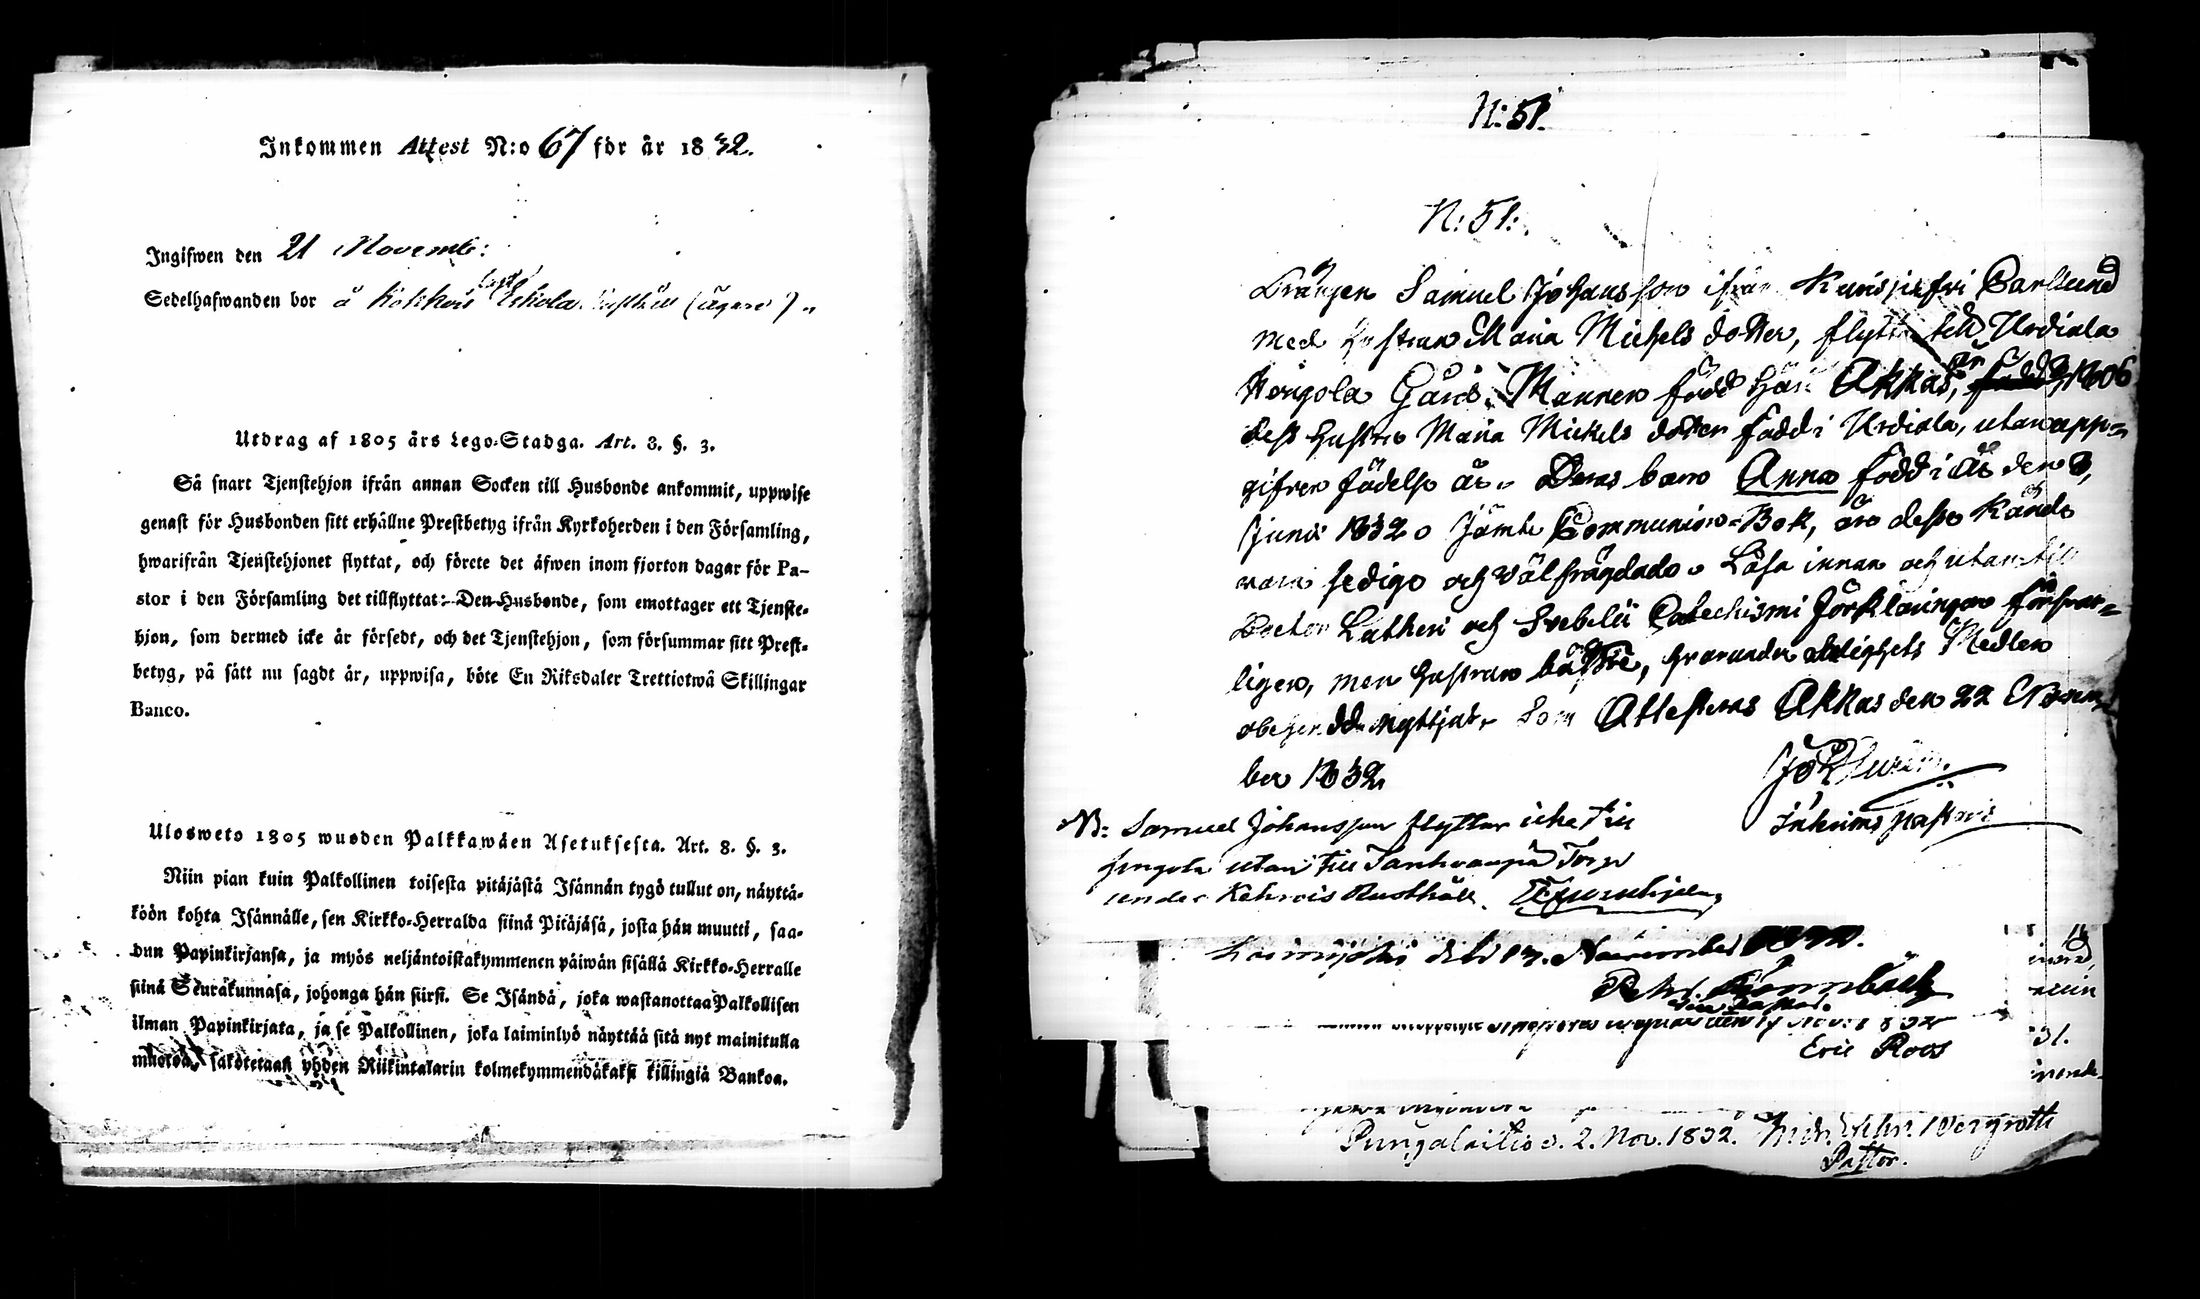 Inkommen Attest N:o 67 för år 1832.
Ingifwen den 21 Novemb:
Sedelhafwanden bor å Eskola (ägare)
Utdrag af 1805 års Lego-Stadga. Art. 8. §. 3.
Så snart Tjenstehjon ifrån annan Socken till Husbonde ankommit, uppwise
genast för Husbonden sitt erhållne Prestbetyg ifrån Kyrkoherden i den Församling,
hwarifrån Tjenstehjonet flyttat, och förete det äfwen inom fjorton dagar för Pa-
stor i den Församling det tillflyttat: Den Husbonde, som emottager ett Tjenste-
hjon, som dermed icke är försedt, och det Tjenstehjon, som försummar sitt Prest-
betyg, på sätt nu sagdt är, uppwisa, böte En Riksdaler Trettiotwå Skillingar
Banco.
Ulosweto 1805 wuoden Palkkawäen Asetuksesta. Art. 8. §. 3.
Niin pian kuin Palkollinen toisesta pitäjästä Isännän tygö tullut on, näyttä-
köön kohta Isännälle, sen Kirkko-Herralda siinä Pitäjäsä, josta hän muutti, saa-
dun Papinkirjansa, ja myös neljäntoistakymmenen päiwän sisällä Kirkko-Herralle
siinä Seurakunnasa, johonga hän siirsi. Se Isändä, joka wastanottaa Palkollisen
ilman Papinkirjata, ja se Palkollinen, joka laiminlyö näyttää sitä nyt mainitulla
muotoa, sakotetaan yhden Riikintalarin kolmekymmendäkaksi killingiä Bankoa.
N: 51.
N: 51:
Drängen Samuel Johansson ifrån Carlslund
med hustrun Maria Michels dotter, flyttar till Urdiala
Hongola Gård. Mannen född här i Akkas, år 1806
dess hustru Maria Mickels dotter född i Urdiala, utan upp-
gifven födelse år. Deras barn Anna född i år den 3,
Junii 1832. Jämte Communion-Bok, äro desse kände
vara sedige och välfrägdade. Läsa innan och utan till
Doctor Lutheri och Svebelii Catechismi Förklaringar försvar-
ligen, men hustrun bättre, hvarunder salighets Medlen
behörigt nyttjat. Som Attesteras Akkas den 22 Novem-
ber 1832.
NB: Samuel Johansson flyttar icke till
Hongola utan till Torp
under Kehrois Rusthåll.
den 17. November
Vice Pastor.
Eric Roos
31.
Pungalaitio d. 2. Nov. 1832.
Pastor.